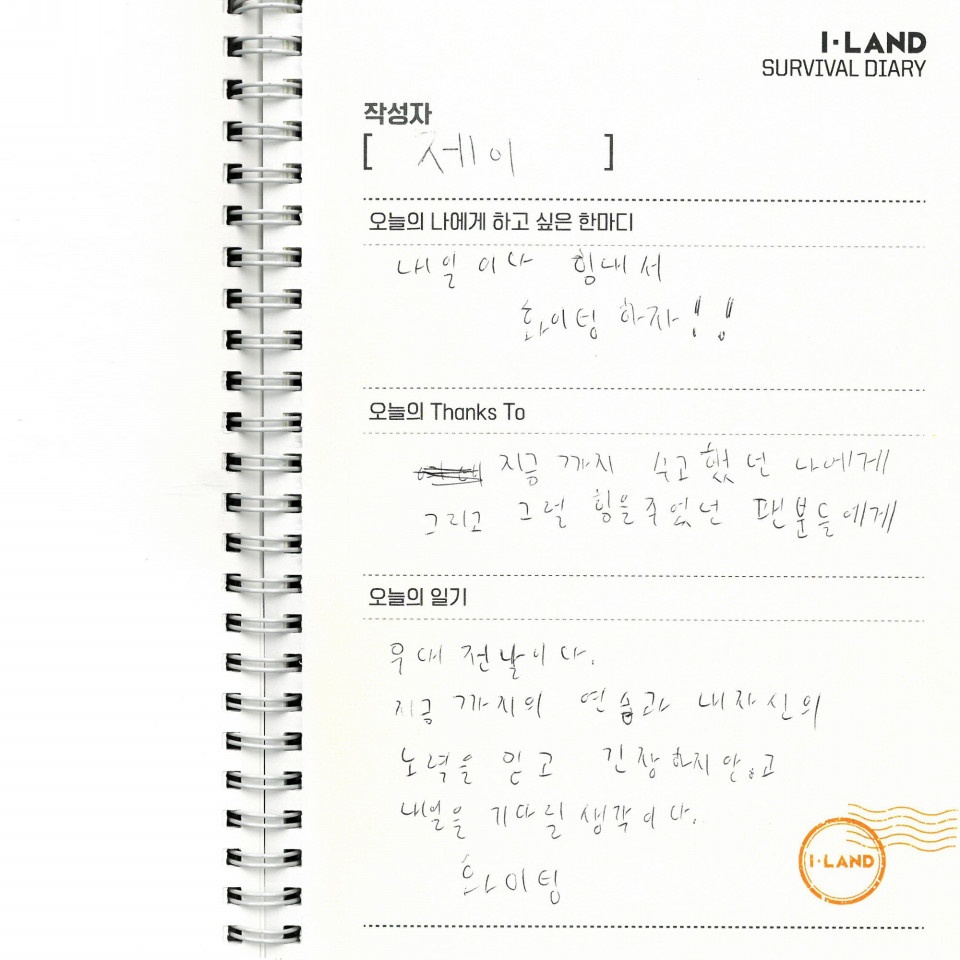 I·LAND
SURVIVAL DIARY
작성자
[ 제이 ]
오늘의 나에게 하고 싶은 한마디
내일 이다 힘내서
화이팅 하자!!
오늘의 Thanks To
지금 까지 수고했던 나에게
그리고 그럴 힘을주었던 팬분들에게
오늘의 일기
무대 전날이다.
지금 까지의 연습과 내자신의
노력을 믿고 긴장하지 않고
내일을 기다릴 생각이다.
화이팅
I·LAND